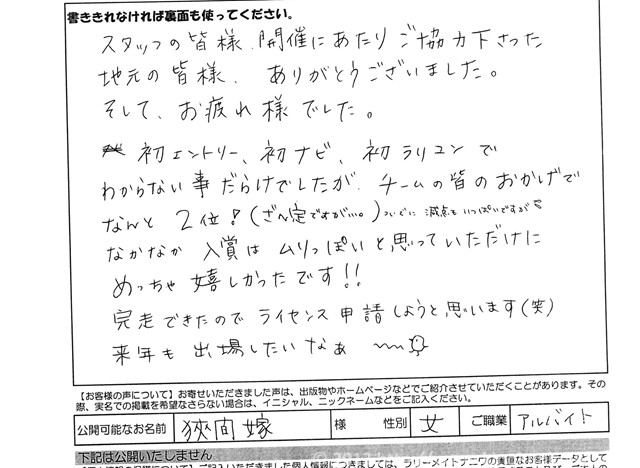 書ききれなければ裏面も使ってください。
スタッフの皆様、開催にあたりご協力下さった
地元の皆様、ありがとうございました。
そして、お疲れ様でした。
初エントリー、初ナビ、初ラリコンで
わからない事だらけでしたが、チームの皆のおかげで
なんと2位!(ざん定ですが…。)ついでに減点もいっぱいですが
なかなか入賞はムリっぽいと思っていただけに
めっちゃ嬉しかったです!!
完走できたのでライセンス申請しようと思います(笑)
来年も出場したいなぁ
【お客様の声について】お寄せいただきました声は、出版物やホームページなどでご紹介させていただくことがあります。その
際、実名での掲載を希望なさらない場合は、イニシャル、ニックネームなどをご記入ください。
公開可能なお名前 狹間嫁 様 性別 女 ご職業 アルバイト
下記は公開いたしません